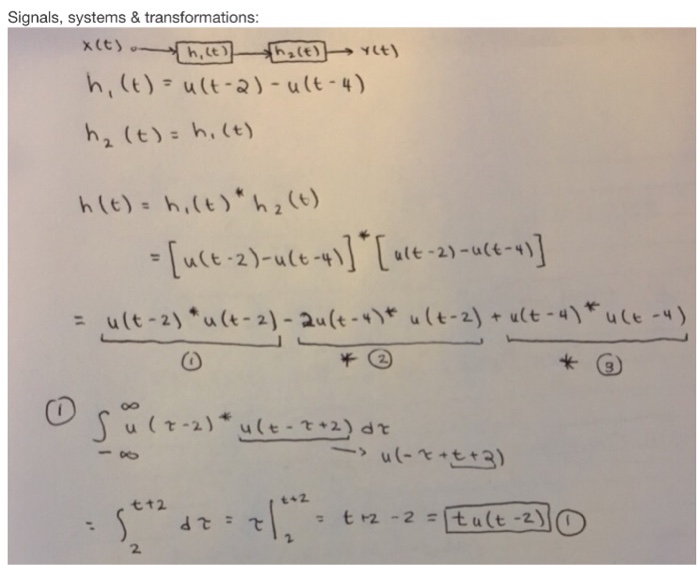 Signals, systems & transformations:
x(t) → h₁(t) → h₂(t) → y(t)
h₁(t) = u(t-2) - u(t-4)
h₂(t) = h₁(t)
h(t) = h₁(t) * h₂(t)
= [u(t-2)-u(t-4)] * [u(t-2)-u(t-4)]
= u(t-2) * u(t-2) - 2u(t-4) * u(t-2) + u(t-4) * u(t-4)
① * ② * ③
① ∫_{-∞}^{∞} u(τ-2) * u(t-τ+2) dτ
→ u(-τ+t+3)
= ∫_{2}^{t+2} dτ = τ|_{2}^{t+2} = t+2-2 = tu(t-2) ①